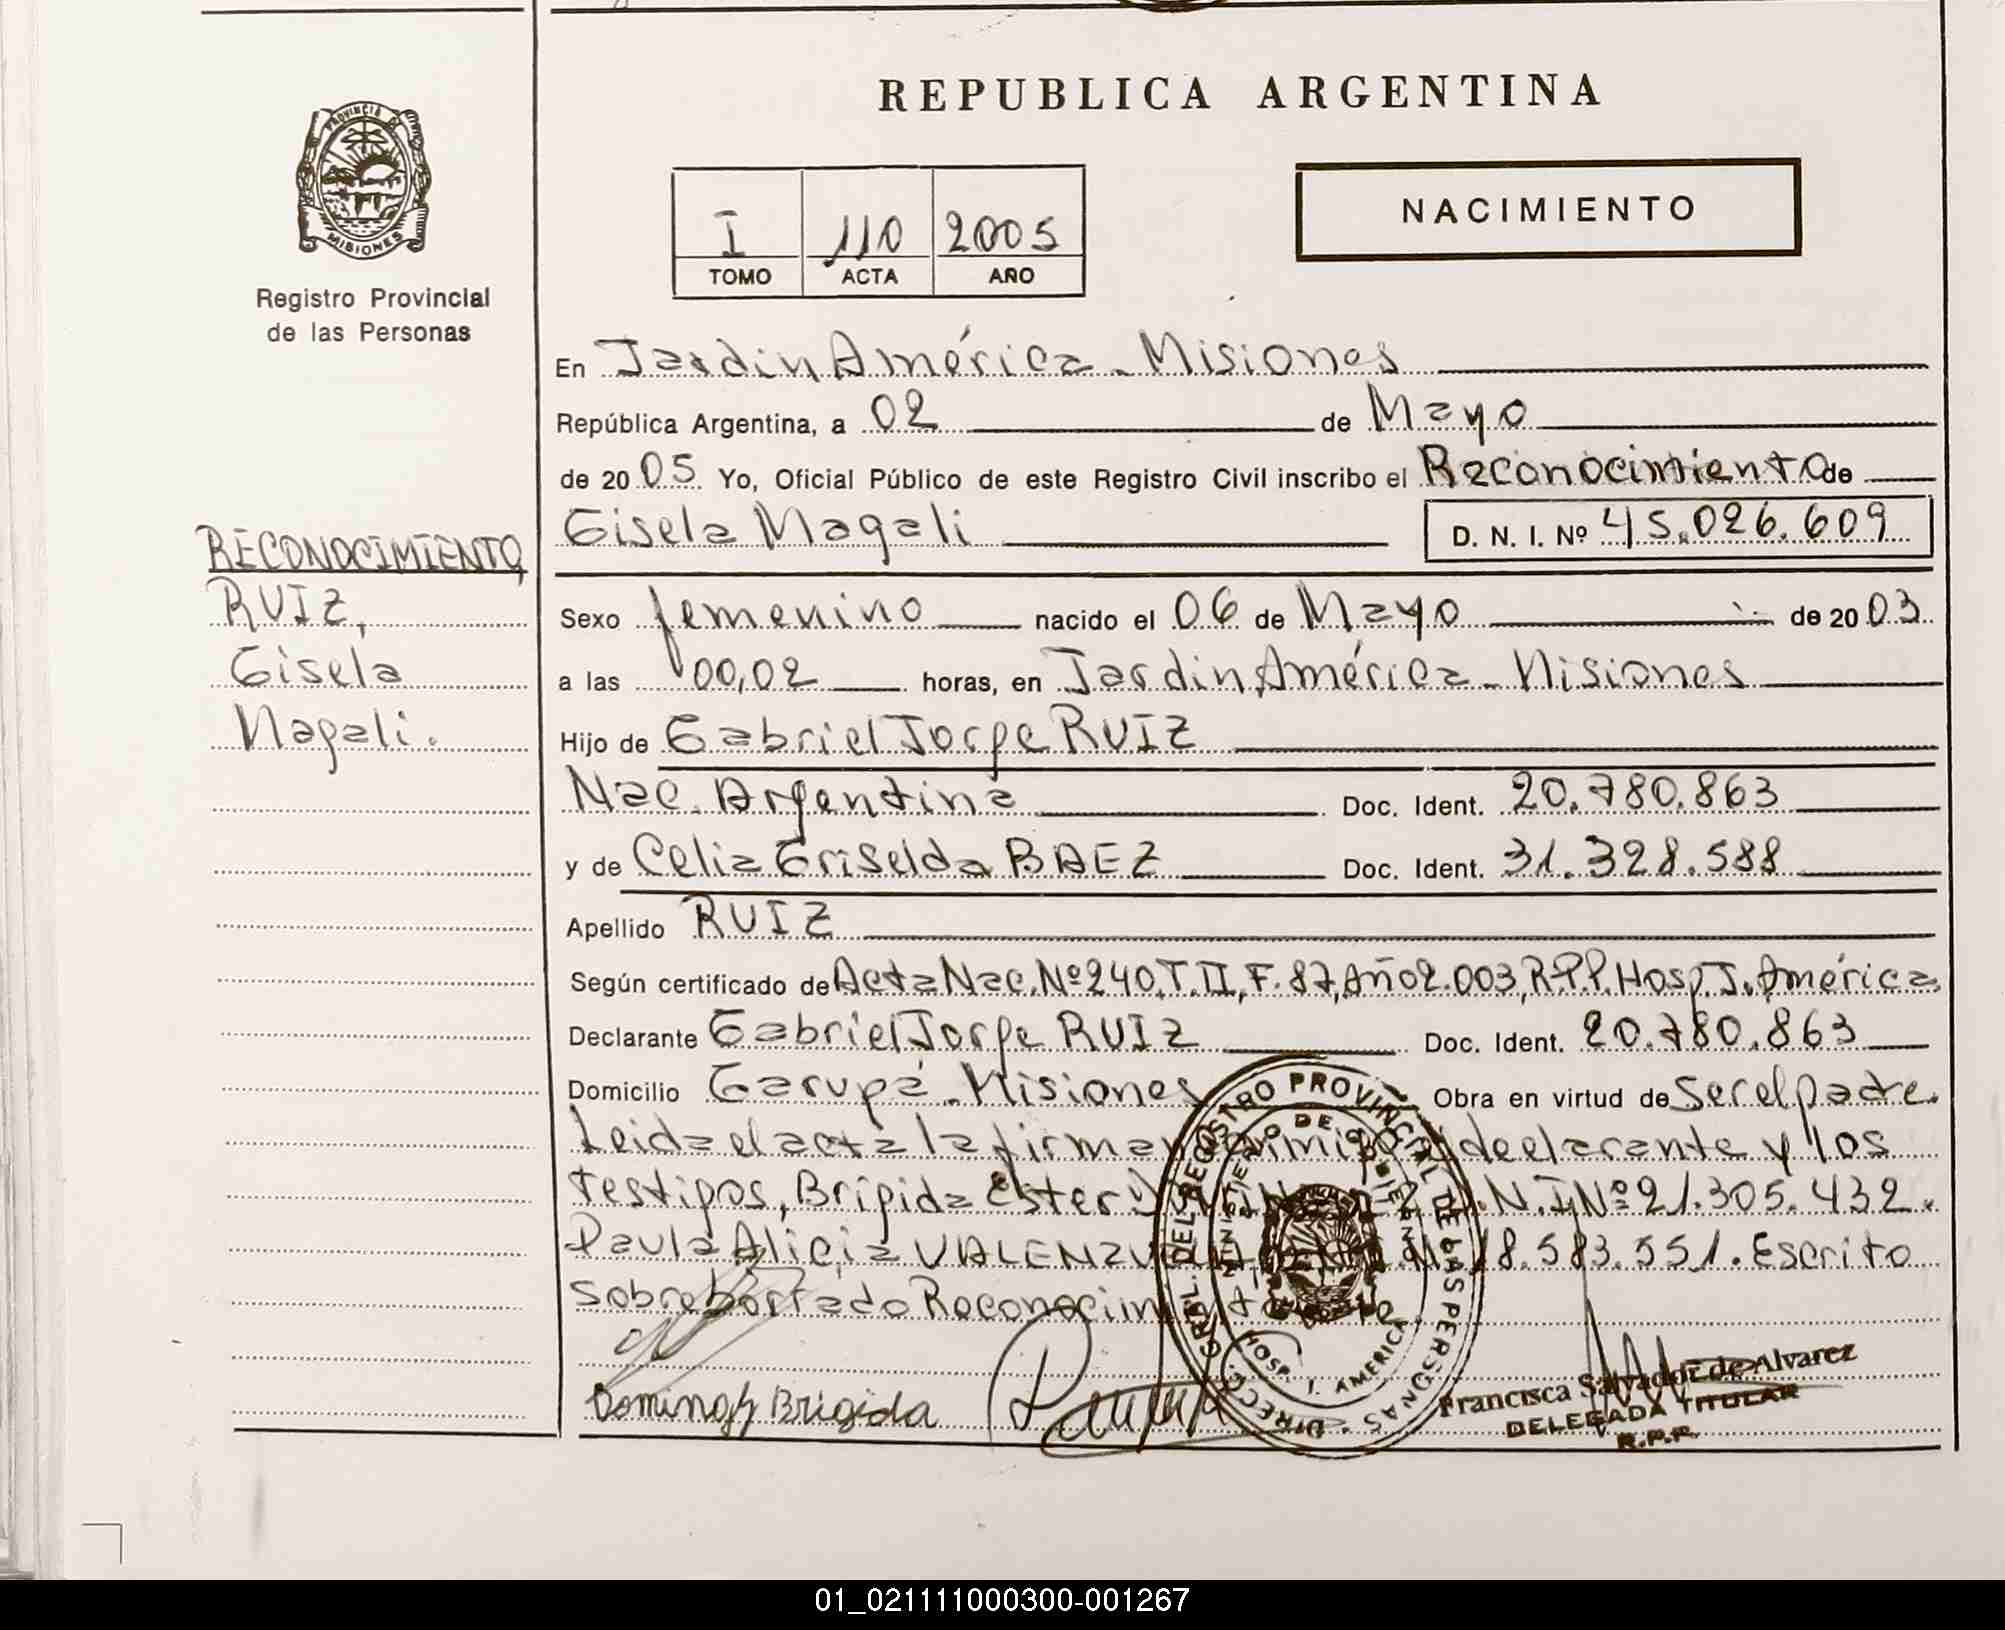 REPUBLICA ARGENTINA
PROVINCIA DE
MISIONES
Registro Provincial
de las Personas
I 110 2005
TOMO ACTA AÑO
NACIMIENTO
En Jardin América - Misiones
República Argentina, a 02 de Mayo
de 2005 Yo, Oficial Público de este Registro Civil inscribo el Reconocimiento de
Gisela Magali D. N. I. Nº 45.026.609
RECONOCIMIENTO
RUIZ,
Gisela
Magali.
Sexo femenino nacido el 06 de Mayo de 2003
a las 00,02 horas, en Jardin América - Misiones
Hijo de Gabriel Jorge RUIZ
Nac. Argentina Doc. Ident. 20.780.863
y de Celia Griselda BAEZ Doc. Ident. 31.328.588
Apellido RUIZ
Según certificado de Acta Nac. Nº 240, T. II, F. 87, Año 2.003, R.P.P. Hosp. J. América
Declarante Gabriel Jorge RUIZ Doc. Ident. 20.780.863
Domicilio Garupá - Misiones Obra en virtud de ser el padre.
Leida el acta la firman declarante y los
testigos, Brígida Ester D.N.I Nº 21.305.432.
Paula Alicia VALENZUELA 18.583.551. Escrito
sobreborrado Reconocimiento
Domingz Brigida
DIRECC. GRAL. DEL REGISTRO PROVINCIAL DE LAS PERSONAS
MINISTERIO DE GOBIERNO
HOSP. J. AMERICA
Francisca Salvador de Alvarez
DELEGADA TITULAR
R.P.P.
01_021111000300-001267